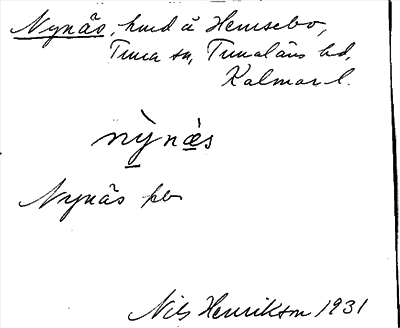 Nynäs, hmd å Hemsebo,
Tuna sn, Tunaläns hd,
Kalmar l.
nỳnæ̀s
Nynäs hb
Nils Henrikson 1931